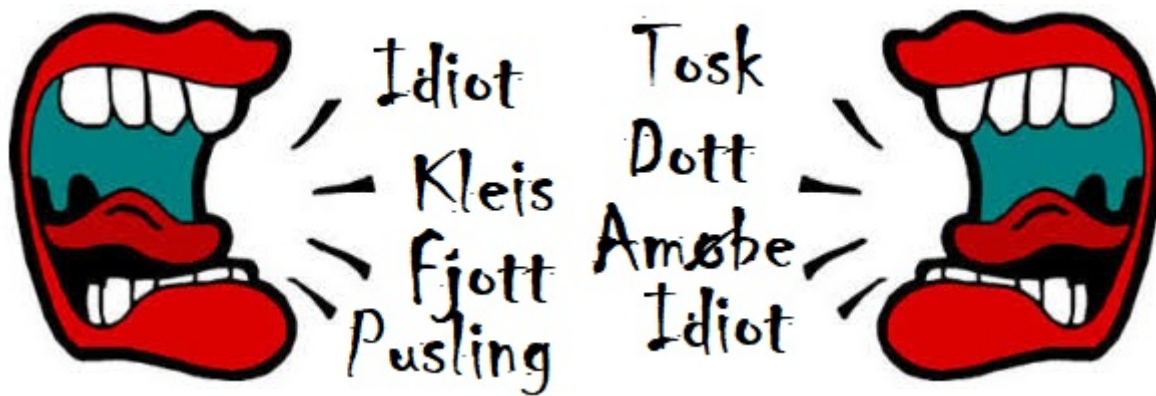 Idiot
Kleis
Fjott
Pusling
Tosk
Dott
Amøbe
Idiot